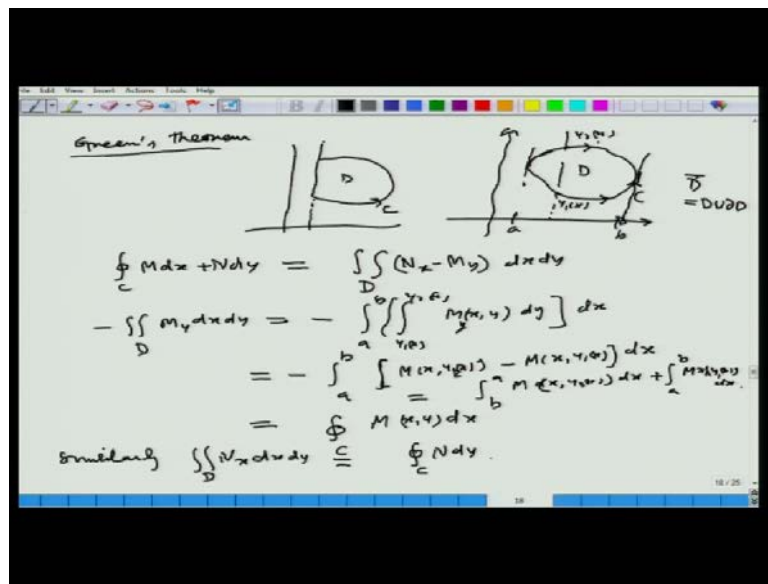 File Edit View Insert Actions Tools Help
Green's Theorem
D
C
y₂(x)
D
y₁(x)
C
a
b
D̄
= D∪∂D
∮_C Mdx + Ndy = ∬_D (N_x - M_y) dxdy
- ∬_D M_y dxdy = - ∫_a^b [∫_{y₁(x)}^{y₂(x)} M_y(x,y) dy] dx
= - ∫_a^b [M(x,y₂(x)) - M(x,y₁(x))] dx
= ∫_b^a M(x,y₂(x)) dx + ∫_a^b M(x,y₁(x)) dx.
= ∮_C M(x,y) dx
Similarly ∬_D N_x dxdy = ∮_C Ndy.
18 / 25
18